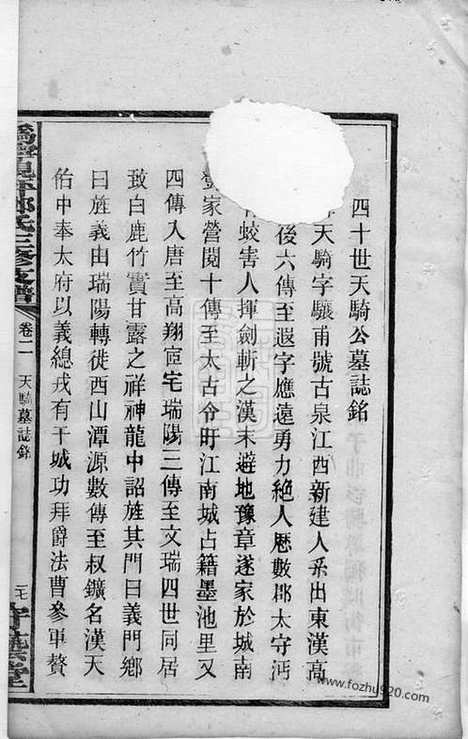 四十世天騎公墓誌銘
天騎字驤甫號古泉江西新建人系出東漢高
後六傳至遐字應遠勇力絕人歷數郡太守沔
有蛟害人揮劍斬之漢末避地豫章遂家於城南
鄧家營閱十傳至太古令盱江南城占籍墨池里又
四傳入唐至高翔宦宅瑞陽三傳至文瑞四世同居
致白鹿竹實甘露之祥神龍中詔旌其門曰義門鄉
曰旌義由瑞陽轉徙西山潭源數傳至叔鑛名漢天
佑中奉太府以義總戎有干城功拜爵法曹參軍贅
鄧氏三修支譜
卷二
天騎墓誌銘
二七
www.fozhu920.com